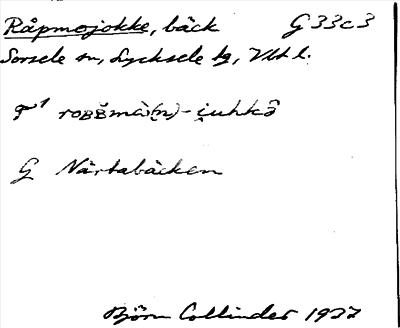 Råpmojokke, bäck G 33c3
Sorsele sn, Lycksele tg, Vbt l.
G Närtabäcken
Björn Collinder 1937